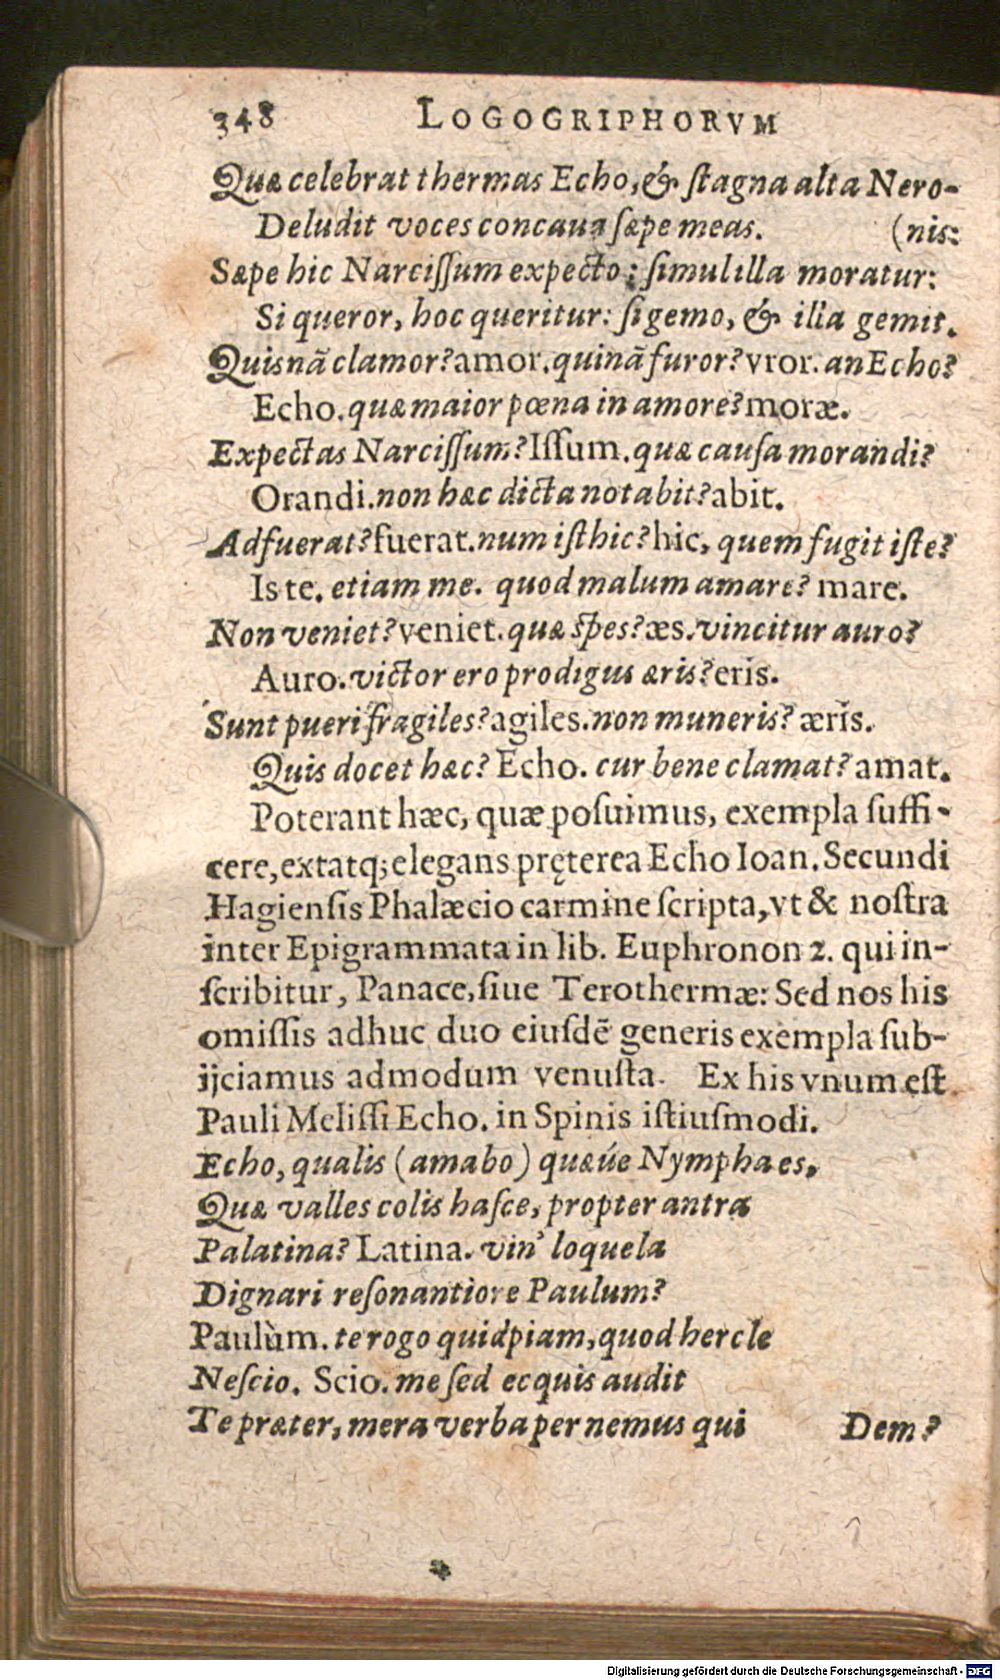 348 LOGOGRIPHORVM
Quæ celebrat thermas Echo, & ſtagna alta Nero-
Deludit voces concaua ſæpe meas. (nis:
Sæpe hic Narciſſum expecto; ſimul illa moratur:
Si queror, hoc queritur: ſi gemo, & illa gemit.
Quisnā clamor? amor. quinā furor? vror. an Echo?
Echo. quæ maior pœna in amore? moræ.
Expectas Narciſſum? Iſſum. quæ cauſa morandi?
Orandi. non hæc dicta notabit? abit.
Adfuerat? fuerat. num iſthic? hic, quem fugit iſte?
Is te. etiam me. quod malum amare? mare.
Non veniet? veniet. quæ ſpes? æs. vincitur auro?
Auro. victor ero prodigus æris? eris.
Sunt pueri fragiles? agiles. non muneris? æris.
Quis docet hæc? Echo. cur bene clamat? amat.
Poterant hæc, quæ poſuimus, exempla ſuffi-
cere, extatq; elegans pręterea Echo Ioan. Secundi
Hagienſis Phalæcio carmine ſcripta, vt & noſtra
inter Epigrammata in lib. Euphronon 2. qui in-
ſcribitur, Panace, ſiue Terothermæ: Sed nos his
omiſſis adhuc duo eiuſdē generis exempla ſub-
ijciamus admodum venuſta. Ex his vnum eſt
Pauli Meliſſi Echo. in Spinis iſtiuſmodi.
Echo, qualis (amabo) quæúe Nympha es,
Quæ valles colis haſce, propter antra
Palatina? Latina. vin' loquela
Dignari reſonantiore Paulum?
Paulùm. te rogo quidpiam, quod hercle
Neſcio. Scio. me ſed ecquis audit
Te præter, mera verba per nemus qui Dem?
Digitalisierung gefördert durch die Deutsche Forschungsgemeinschaft - DFG